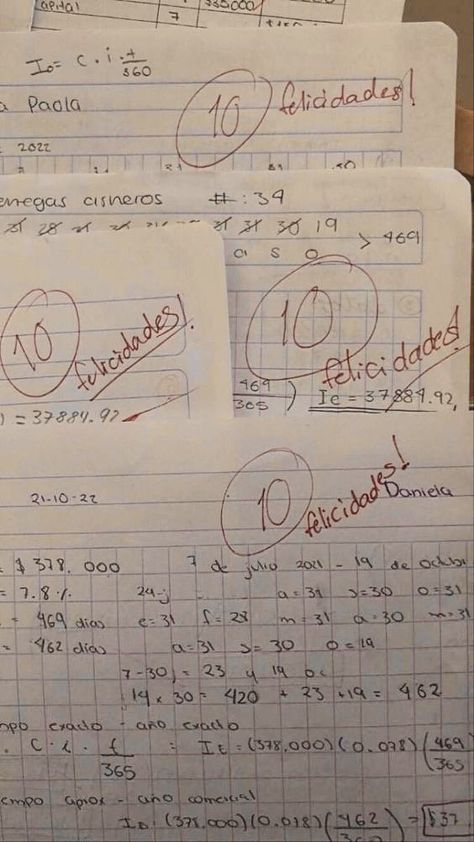 apital
7
$35000
Io = C . i . t/360
10
felicidades!
a Paola
2022
enegas cisneros #: 34
31 30 19
> 469
a s o
10
felicidades!
10
felicidades!
469/365 ) Ie = 37884.92,
) = 37884.92
21-10-22
10
felicidades!
Daniela
= $ 378,000 7 de julio 2021 - 19 de octub
= 7.8 %. 24-j a=31 s=30 o=31
= 469 días e=31 f=28 m=31 a=30 m=31
= 462 días a=31 s=30 o=19
7-30 = 23 y 19 oc
14 x 30 = 420 + 23 +19 = 462
mpo exacto - año exacto
. C . i . t/365 = IE = (378,000) (0.078) (469/365
empo aprox - año comercial
Io = (378,000) (0.078) (462/360) = $37